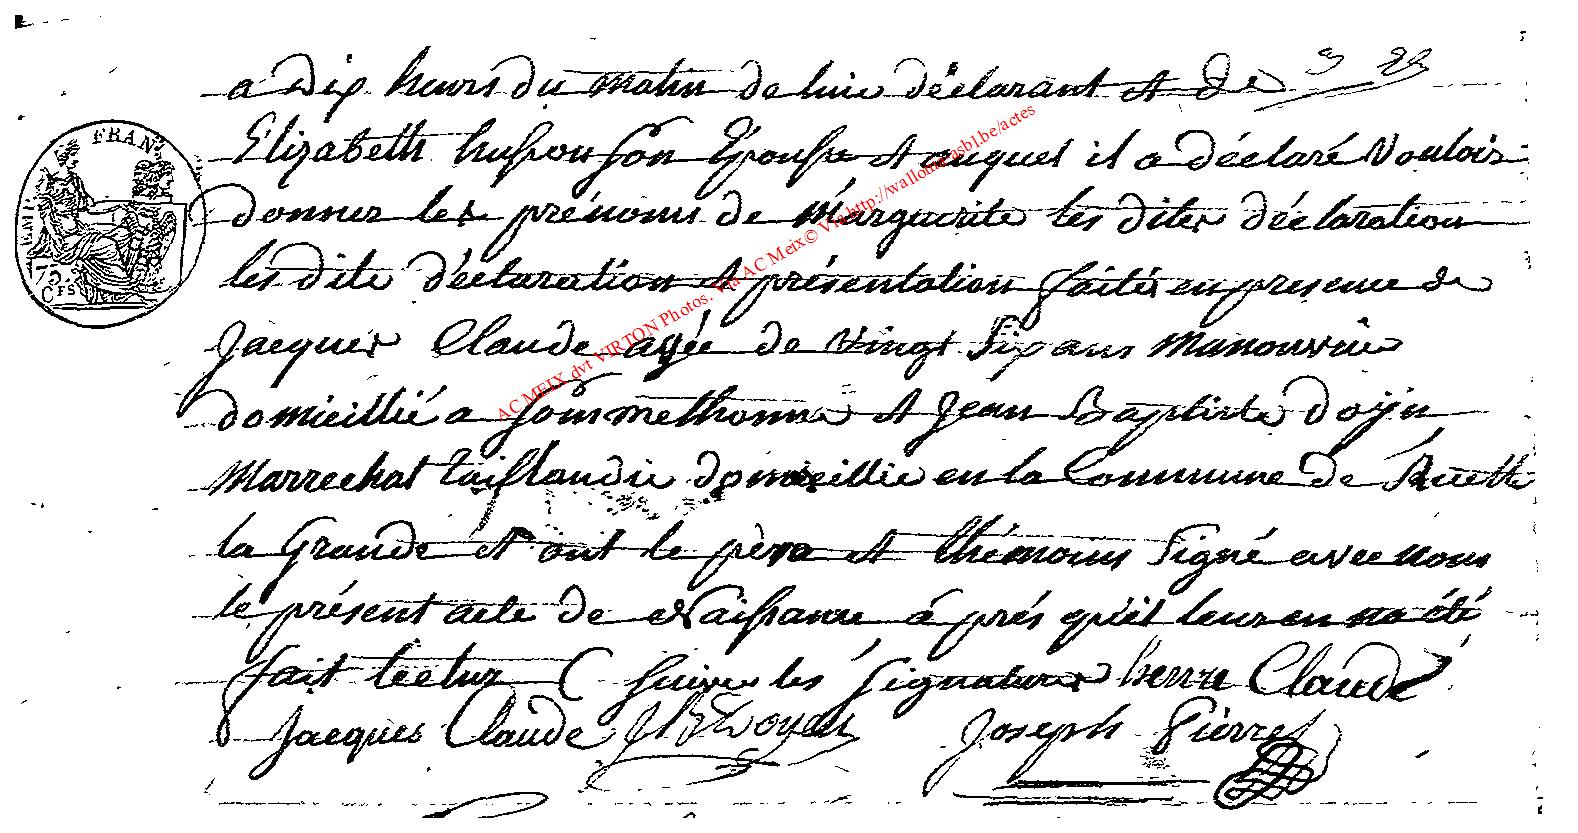 a Dix heurs du matin de luie déclarant et de
Elizabeth husson son Epousse et auquel il a déclaré Vouloir
donner les prénoms de Marguerite les dites déclaration
les dite déclaration et présentation faites en presence de
Jacques Claude agée de vingt Six ans Manouvrie
domicillié a Sommethonne et Jean Baptiste Doyn
Marrechal taillandie domicillie en la Commune de Ruette
la Grande et ont le père et thémoins Signé avec nous
le présent acte de Naissance a prés qu'il leur en na été
fait lectur ( Suive les Signatures henri Claude
Jacques Claude JB Doyen Joseph Pierret
FRAN
EMP
75
CES
AC MEIX dvt VIRTON Photos, via AC Meix© Via http://wallonica asbl.be/actes